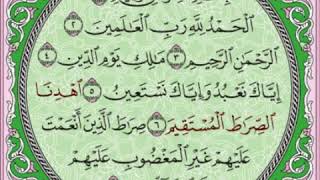 ٱلْحَمْدُ لِلَّهِ رَبِّ ٱلْعَٰلَمِينَ ٢
ٱلرَّحْمَٰنِ ٱلرَّحِيمِ ٣ مَٰلِكِ يَوْمِ ٱلدِّينِ ٤
إِيَّاكَ نَعْبُدُ وَإِيَّاكَ نَسْتَعِينُ ٥ ٱهْدِنَا
ٱلصِّرَٰطَ ٱلْمُسْتَقِيمَ ٦ صِرَٰطَ ٱلَّذِينَ أَنْعَمْتَ
عَلَيْهِمْ غَيْرِ ٱلْمَغْضُوبِ عَلَيْهِمْ